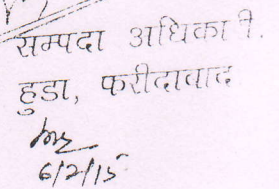 सम्पदा अधिकारी.
हुडा, फरीदाबाद
6/2/15